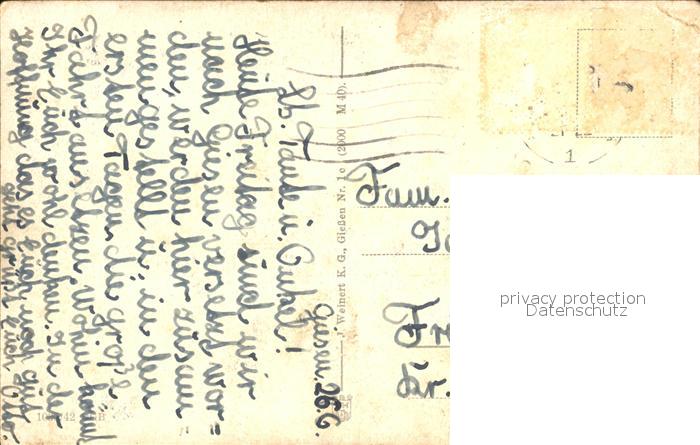 Giesen. 26.6.
Lb. Tante u. Onkel!
Heute Freitag sind wir
nach Giesen versetzt wor=
den, werden hier zusam
mengestellt u. in den
ersten Tagen die groß'e
Fahrt aus
Ihr Euch wohl denken. In der
Hoffnung das es Euch noch gut
geht grüßt Euch
J. Weinert K. G., Gießen Nr. 1e (2000 M 40).
1
Fam.
Fr
Kr.
privacy protection
Datenschutz